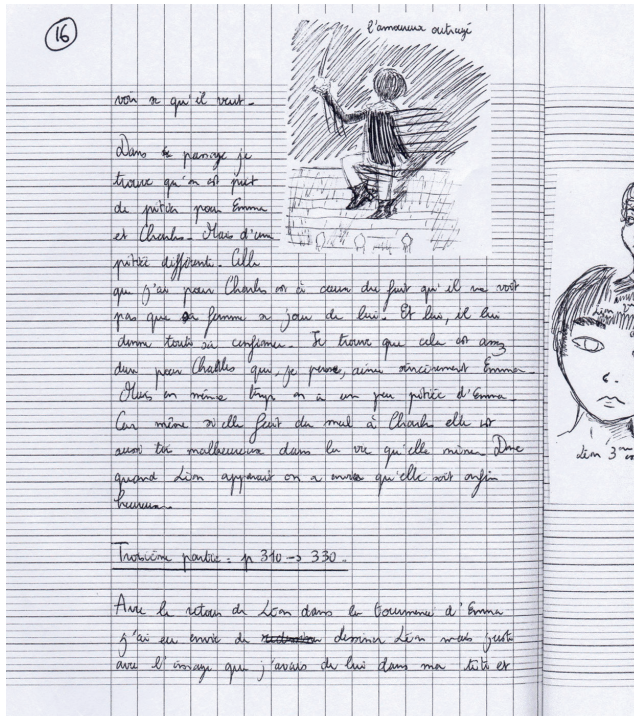 16
l'amoureux outragé
voir ce qu'il veut.
Dans ce passage je
trouve qu'on est pris
de pitiée pour Emma
et Charles. Mais d'une
pitiée différente. Celle
que j'ai pour Charles est à cause du fait qu'il ne voit
pas que sa femme se joue de lui. Et lui, il lui
donne toute sa confiance. Je trouve que cela est assez
dur pour Chalbles qui, je pense, aime sincèrement Emma.
Mais en même temps on a un peu pitiée d'Emma.
Car même si elle fait du mal à Charles elle est
aussi très malheureuse dans la vie qu'elle mène. Donc
quand Léon apparait on a envie qu'elle soit enfin
heureuse.
Troisième partie : p 310 -> 330.
Avec le retour de Léon dans la tourmente d'Emma
j'ai eu envie de dessiner Léon mais juste
avec l'image que j'avais de lui dans ma tête et
Léon 3